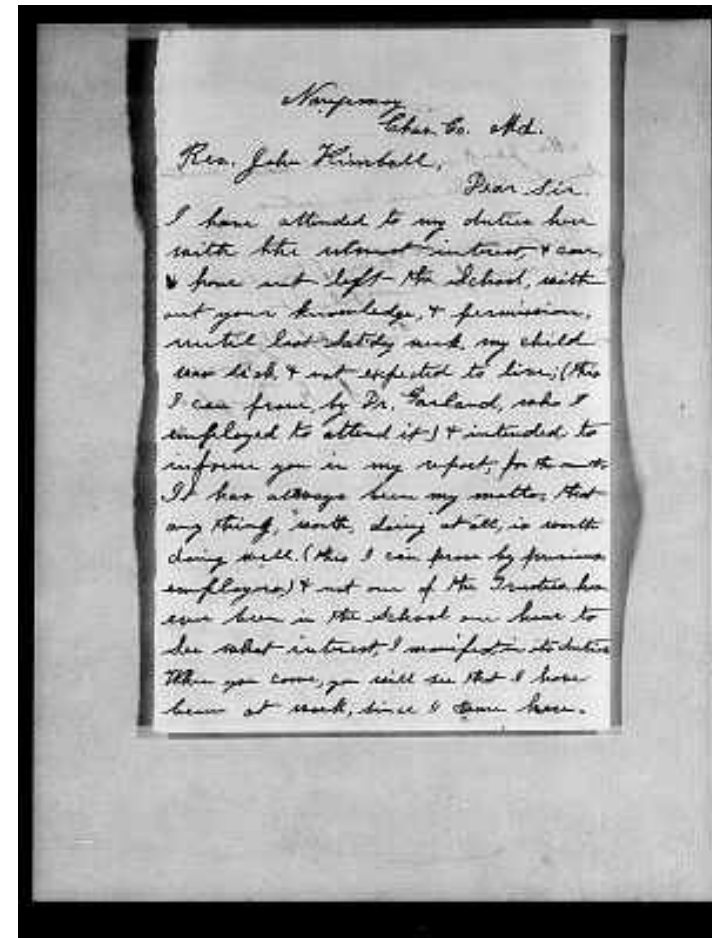 Nanjemoy
Chas. Co. Md.
Rev. John Kimball,
Dear Sir.
I have attended to my duties here
with the utmost interest, & care,
& have not left the School, with
out your knowledge, & permission,
until last Satdy week, my child
was sick & not expected to live; (this
I can prove, by Dr. Garland, who I
employed to attend it) & intended to
inform you in my report, for the month.
It has always been my motto, that
any thing, worth, doing at all, is worth
doing well. (this I can prove by previous
employers) & not one of the Trustees has
ever been in the School one hour to
see what interest, I manifest in its duties
When you come, you will see that I have
been at work, since I came here.